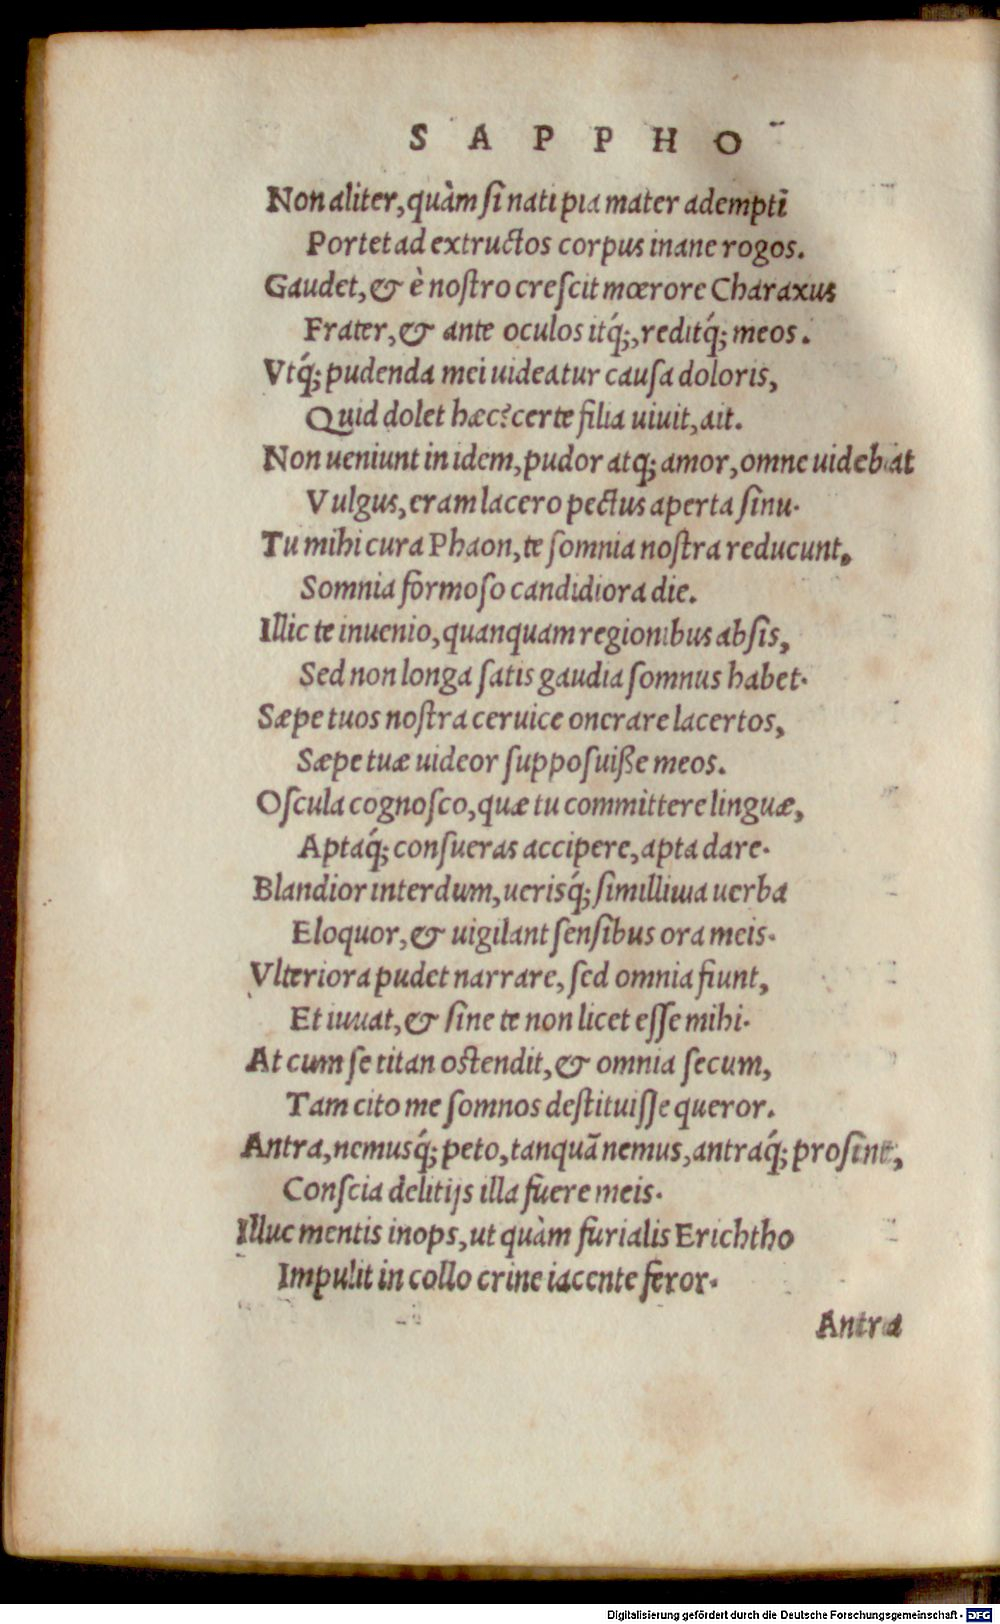 SAPPHO
Non aliter, quàm si nati pia mater adempti
Portet ad extructos corpus inane rogos.
Gaudet, & è nostro crescit mœrore Charaxus
Frater, & ante oculos itq́;, reditq́; meos.
Vtq́; pudenda mei uideatur causa doloris,
Quid dolet hæc? certe filia uiuit, ait.
Non ueniunt in idem, pudor atq; amor, omne uidebat
Vulgus, eram lacero pectus aperta sinu.
Tu mihi cura Phaon, te somnia nostra reducunt,
Somnia formoso candidiora die.
Illic te inuenio, quanquam regionibus absis,
Sed non longa satis gaudia somnus habet.
Sæpe tuos nostra ceruice onerare lacertos,
Sæpe tuæ uideor supposuiße meos.
Oscula cognosco, quæ tu committere linguæ,
Aptaq́; consueras accipere, apta dare.
Blandior interdum, uerisq́; simillima uerba
Eloquor, & uigilant sensibus ora meis.
Vlteriora pudet narrare, sed omnia fiunt,
Et iuuat, & sine te non licet esse mihi.
At cum se titan ostendit, & omnia secum,
Tam cito me somnos destituisse queror.
Antra, nemusq́; peto, tanquã nemus, antraq́; prosint,
Conscia delitijs illa fuere meis.
Illuc mentis inops, ut quàm furialis Erichtho
Impulit in collo crine iacente feror.
Antra
Digitalisierung gefördert durch die Deutsche Forschungsgemeinschaft - DFG